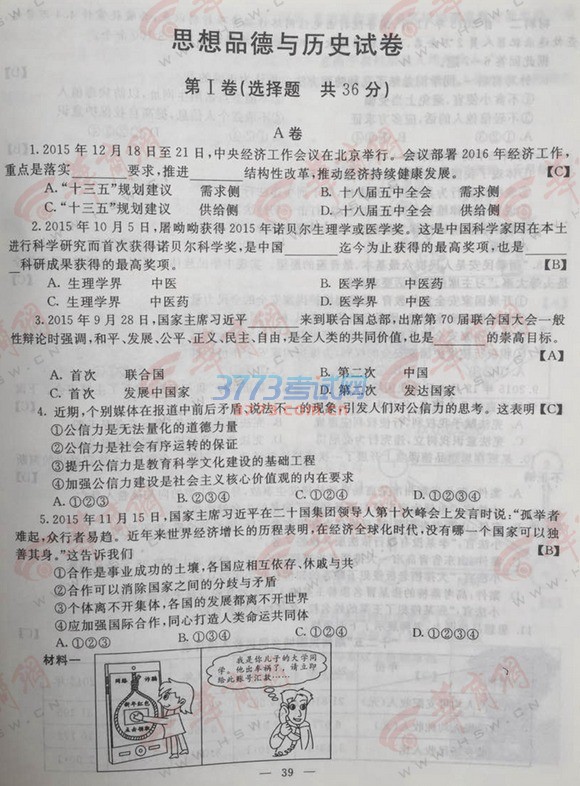 思想品德与历史试卷
第Ⅰ卷(选择题 共36分)
A卷
1. 2015年12月18日至21日,中央经济工作会议在北京举行。会议部署2016年经济工作,
重点是落实________要求,推进________结构性改革,推动经济持续健康发展。 【C】
A. “十三五”规划建议 需求侧 B. 十八届五中全会 需求侧
C. “十三五”规划建议 供给侧 D. 十八届五中全会 供给侧
2. 2015年10月5日,屠呦呦获得2015年诺贝尔生理学或医学奖。这是中国科学家因在本土
进行科学研究而首次获得诺贝尔科学奖,是中国________迄今为止获得的最高奖项,也是____
_科研成果获得的最高奖项。 【B】
A. 生理学界 中医 B. 医学界 中医药
C. 生理学界 中医药 D. 医学界 中医
3. 2015年9月28日,国家主席习近平________来到联合国总部,出席第70届联合国大会一般
性辩论时强调,和平、发展、公平、正义、民主、自由,是全人类的共同价值,也是________的崇高目标。
【A】
A. 首次 联合国 B. 第二次 中国
C. 首次 发展中国家 D. 第二次 发达国家
3773考试网
4. 近期,个别媒体在报道中前后矛盾、说法不一的现象,引发人们对公信力的思考。这表明【C】
①公信力是无法量化的道德力量
②公信力是社会有序运转的保证
③提升公信力是教育科学文化建设的基础工程
④加强公信力建设是社会主义核心价值观的内在要求
A. ①②③ B. ②③④ C. ①②④ D. ①③④
5. 2015年11月15日,国家主席习近平在二十国集团领导人第十次峰会上发言时说:“孤举者
难起,众行者易趋。近年来世界经济增长的历程表明,在经济全球化时代,没有哪一个国家可以独
善其身。”这告诉我们 【B】
①合作是事业成功的土壤,各国应相互依存、休戚与共
②合作可以消除国家之间的分歧与矛盾
③个体离不开集体,各国的发展都离不开世界
④应加强国际合作,同心打造人类命运共同体
A. ①②③ B. ①③④ C. ①②④ D. ①②③④
材料一
网络 诈骗
新年红包
点击领取
我是你儿子的大学同
学。他出车祸了,请立即
给此账号汇款……
— 39 —